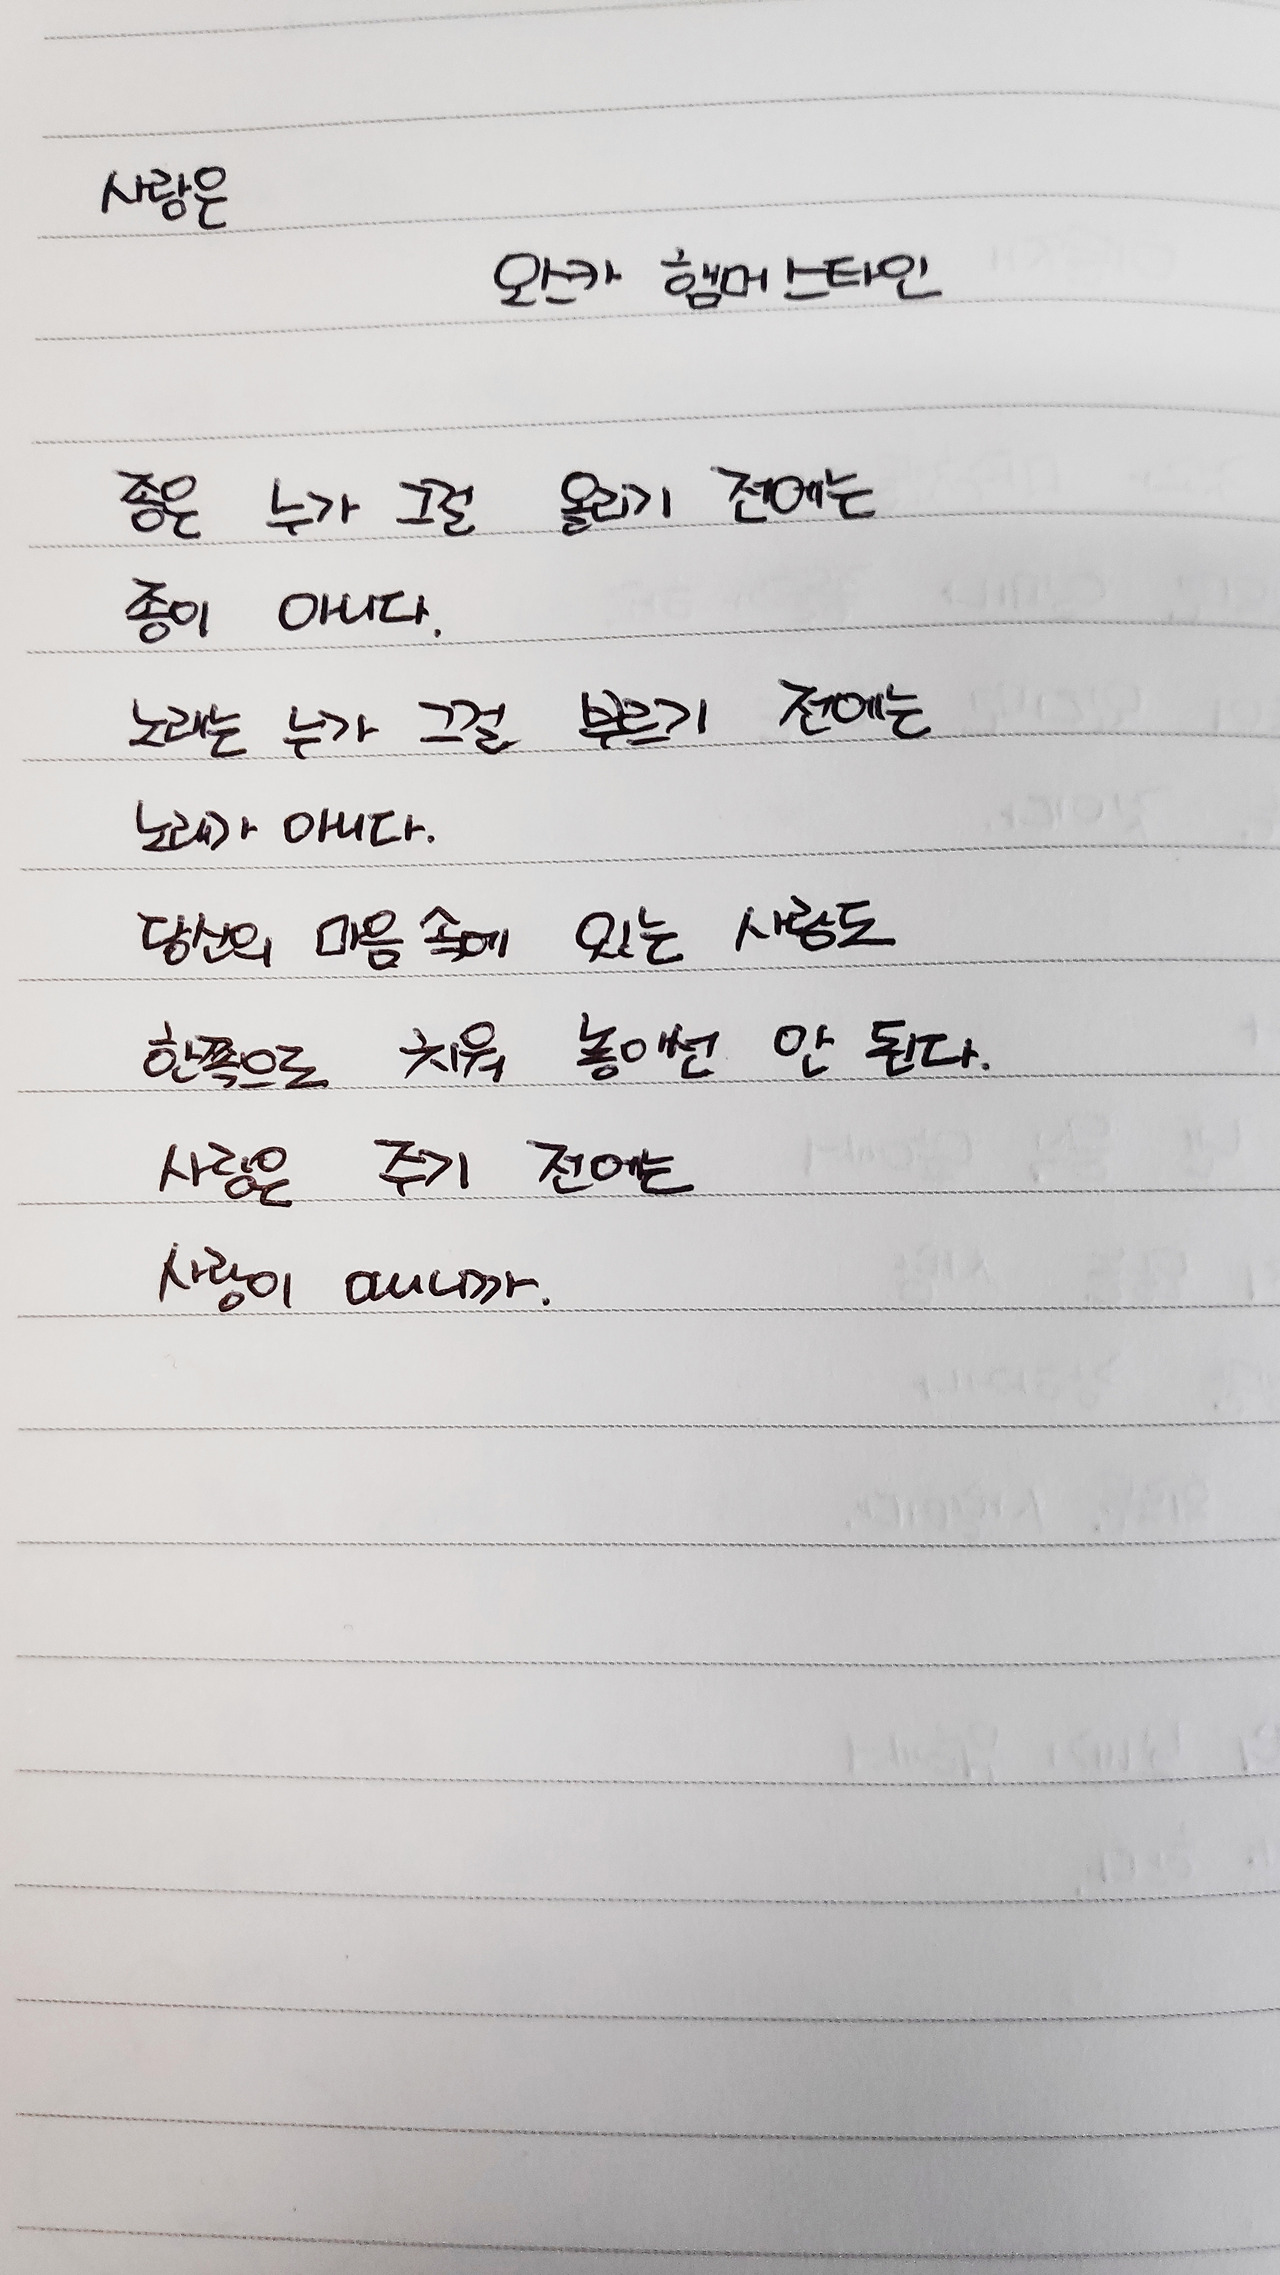 사랑은
오스카 햄머스타인
종은 누가 그걸 울리기 전에는
종이 아니다.
노래는 누가 그걸 부르기 전에는
노래가 아니다.
당신의 마음속에 있는 사랑도
한쪽으로 치워 놓아선 안 된다.
사랑은 주기 전에는
사랑이 아니니까.